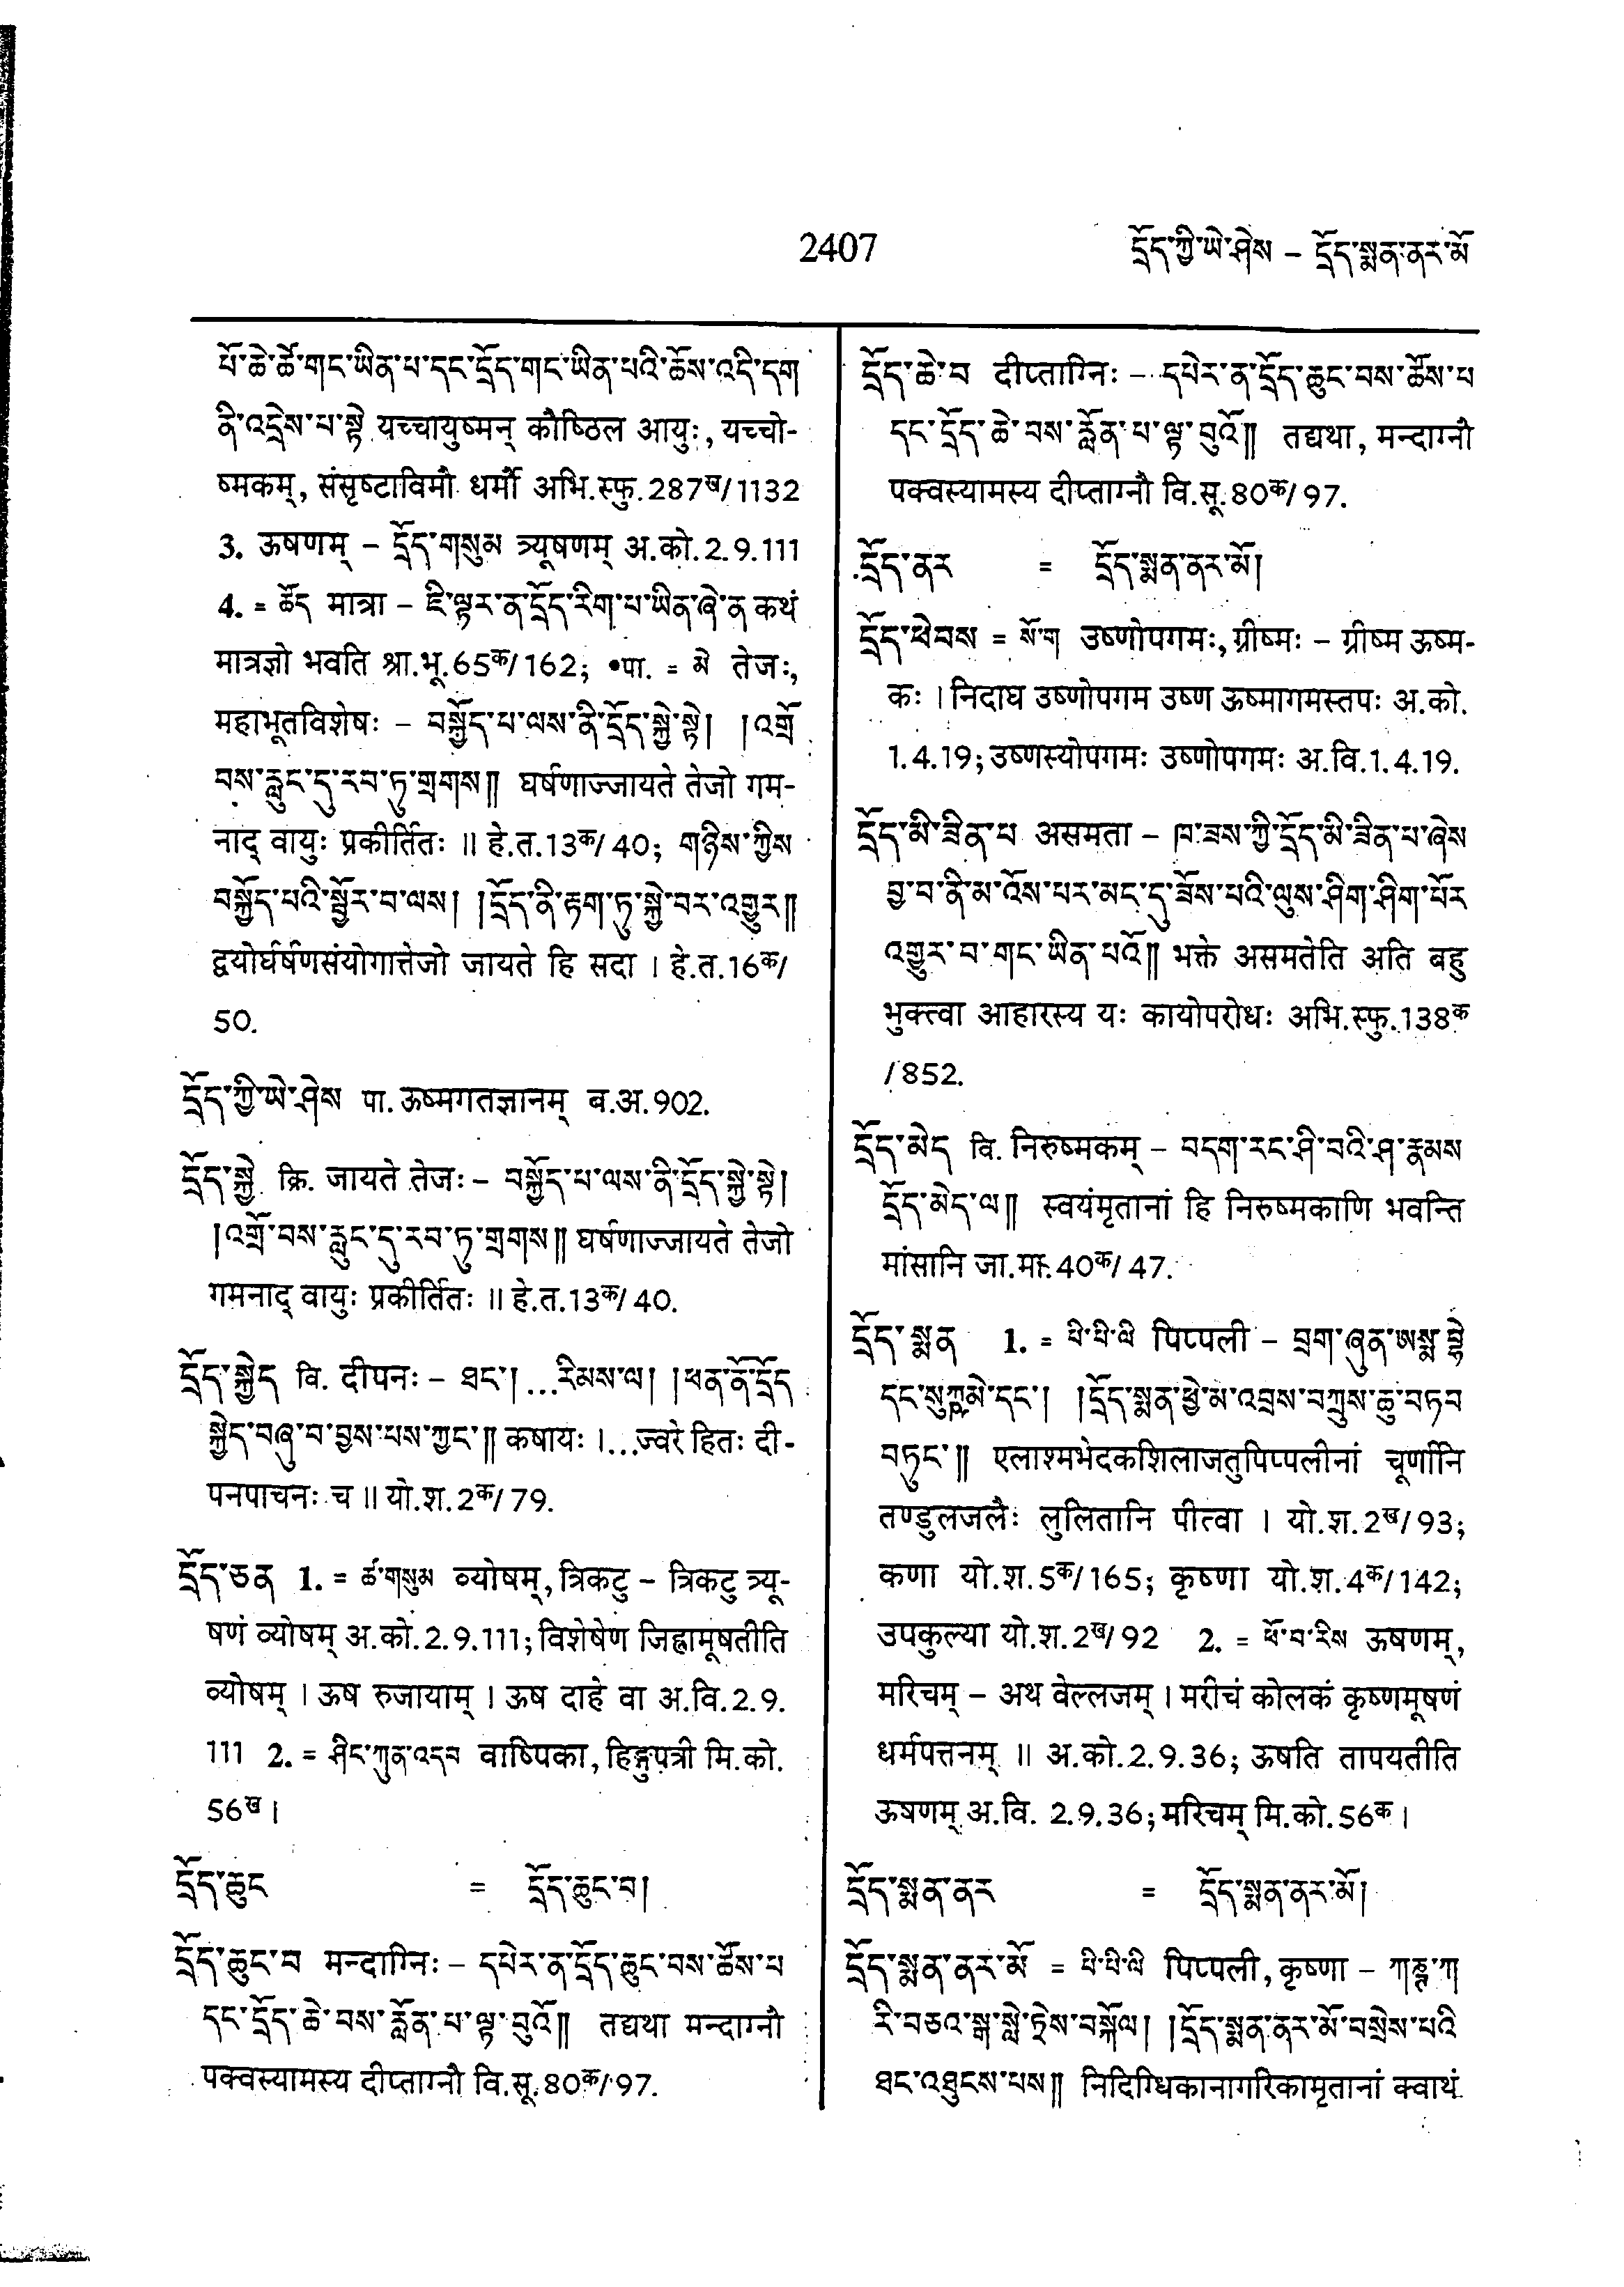 2407
དྲོད་ཀྱི་ཡེ་ཤེས – དྲོད་སྨན་ནར་མོ
པོ་ཆེ་ཚེ་གང་ཡིན་པ་དང་དྲོད་གང་ཡིན་པའི་ཆོས་འདི་དག
ནི་འདྲེས་པ་སྟེ यच्चायुष्मन् कौष्ठिल आयुः, यच्चो-
ष्मकम्, संसृष्टाविमौ धर्मौ अभि.स्फु.287ख/1132
3. ऊषणम् – དྲོད་གསུམ त्र्यूषणम् अ.को.2.9.111
4. = ཚོད मात्रा – ཇི་ལྟར་ན་དྲོད་རིག་པ་ཡིན་ཞེ་ན कथं
मात्रज्ञो भवति श्रा.भू.65क/162; •पा. = མེ तेजः,
महाभूतविशेषः – བསྐྱོད་པ་ལས་ནི་དྲོད་སྐྱེ་སྟེ། །འགྲོ
བས་རླུང་དུ་རབ་ཏུ་གྲགས༎ घर्षणाज्जायते तेजो गम-
नाद् वायुः प्रकीर्तितः ॥ हे.त.13क/40; གཉིས་ཀྱིས
བསྐྱོད་པའི་སྦྱོར་བ་ལས། །དྲོད་ནི་རྟག་ཏུ་སྐྱེ་བར་འགྱུར༎
द्वयोर्घर्षणसंयोगात्तेजो जायते हि सदा । हे.त.16क/
50.
དྲོད་ཀྱི་ཡེ་ཤེས पा. ऊष्मगतज्ञानम् ब.अ.902.
དྲོད་སྐྱེ क्रि. जायते तेजः – བསྐྱོད་པ་ལས་ནི་དྲོད་སྐྱེ་སྟེ།
།འགྲོ་བས་རླུང་དུ་རབ་ཏུ་གྲགས༎ घर्षणाज्जायते तेजो
गमनाद् वायुः प्रकीर्तितः ॥ हे.त.13क/40.
དྲོད་སྐྱེད वि. दीपनः – ཐང་། ...རིམས་ལ། །ཕན་ནོ་དྲོད
སྐྱེད་བཞུ་བ་བྱས་པས་ཀྱང་༎ कषायः ।...ज्वरे हितः दी-
पनपाचनः च ॥ यो.श.2क/79.
དྲོད་ཅན 1. = ཚ་གསུམ व्योषम्, त्रिकटु – त्रिकटु त्र्यू-
षणं व्योषम् अ.को.2.9.111; विशेषेण जिह्वामूषतीति
व्योषम् । ऊष रुजायाम् । ऊष दाहे वा अ.वि.2.9.
111 2. = ཤིང་ཀུན་འདབ वाष्पिका, हिङ्गुपत्री मि.को.
56ख ।
དྲོད་ཆུང = དྲོད་ཆུང་བ།
དྲོད་ཆུང་བ मन्दाग्निः – དཔེར་ན་དྲོད་ཆུང་བས་ཚོས་པ
དང་དྲོད་ཆེ་བས་རློན་པ་ལྟ་བུའོ༎ तद्यथा मन्दाग्नौ
पक्वस्यामस्य दीप्ताग्नौ वि.सू.80क/97.
དྲོད་ཆེ་བ दीप्ताग्निः – དཔེར་ན་དྲོད་ཆུང་བས་ཚོས་པ
དང་དྲོད་ཆེ་བས་རློན་པ་ལྟ་བུའོ༎ तद्यथा, मन्दाग्नौ
पक्वस्यामस्य दीप्ताग्नौ वि.सू.80क/97.
དྲོད་ནར = དྲོད་སྨན་ནར་མོ།
དྲོད་ཕེབས = སོ་ག उष्णोपगमः, ग्रीष्मः – ग्रीष्म ऊष्म-
कः । निदाघ उष्णोपगम उष्ण ऊष्मागमस्तपः अ.को.
1.4.19; उष्णस्योपगमः उष्णोपगमः अ.वि.1.4.19.
དྲོད་མི་ཟིན་པ असमता – ཁ་ཟས་ཀྱི་དྲོད་མི་ཟིན་པ་ཞེས
བྱ་བ་ནི་མ་འོས་པར་མང་དུ་ཟོས་པའི་ལུས་ཤིག་ཤིག་པོར
འགྱུར་བ་གང་ཡིན་པའོ༎ भक्ते असमतेति अति बहु
भुक्त्वा आहारस्य यः कायोपरोधः अभि.स्फु.138क
/852.
དྲོད་མེད वि. निरुष्मकम् – བདག་རང་ཤི་བའི་ཤ་རྣམས
དྲོད་མེད་ལ༎ स्वयंमृतानां हि निरुष्मकाणि भवन्ति
मांसानि जा.मा.40क/47.
དྲོད་སྨན 1. = པི་པི་ལི पिप्पली – བྲག་ཞུན་ཨསྨ་བྷེ
དང་སུཀྵྨེ་དང་། །དྲོད་སྨན་ཕྱེ་མ་འབྲས་བཀྲུས་ཆུ་བཏབ
བཏུང་༎ एलाश्मभेदकशिलाजतुपिप्पलीनां चूर्णानि
तण्डुलजलैः लुलितानि पीत्वा । यो.श.2ख/93;
कणा यो.श.5क/165; कृष्णा यो.श.4क/142;
उपकुल्या यो.श.2ख/92 2. = ཕོ་བ་རིས ऊषणम्,
मरिचम् – अथ वेल्लजम् । मरीचं कोलकं कृष्णमूषणं
धर्मपत्तनम् ॥ अ.को.2.9.36; ऊषति तापयतीति
ऊषणम् अ.वि. 2.9.36; मरिचम् मि.को.56क ।
དྲོད་སྨན་ནར = དྲོད་སྨན་ནར་མོ།
དྲོད་སྨན་ནར་མོ = པི་པི་ལི पिप्पली, कृष्णा – ཀཎྜ་ཀ
རི་བཅའ་སྒ་སླེ་ཏྲེས་བསྐོལ། །དྲོད་སྨན་ནར་མོ་བསྲེས་པའི
ཐང་འཐུངས་པས༎ निदिग्धिकानागरिकामृतानां क्वाथं